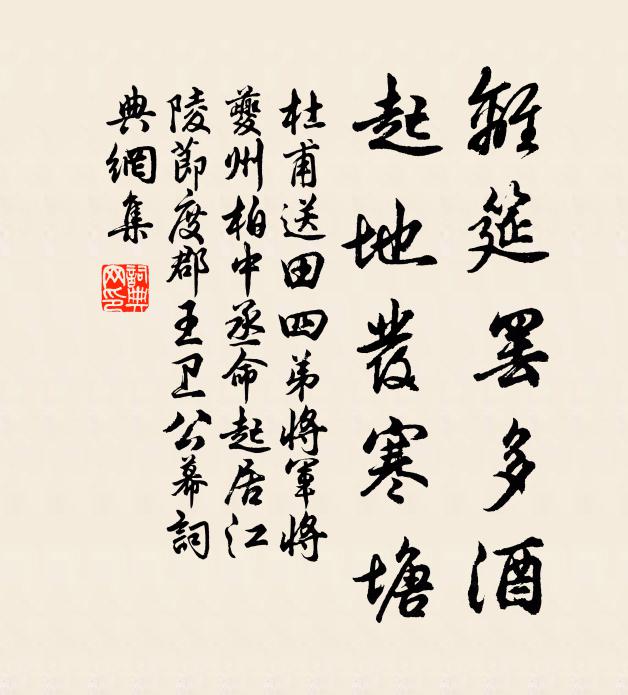 離筵罢多酒
起地發寒塘
杜甫送田四弟將軍將
夔州柏中丞命起居江
陵節度郡王卫公幕詞
典網集
詞典网印